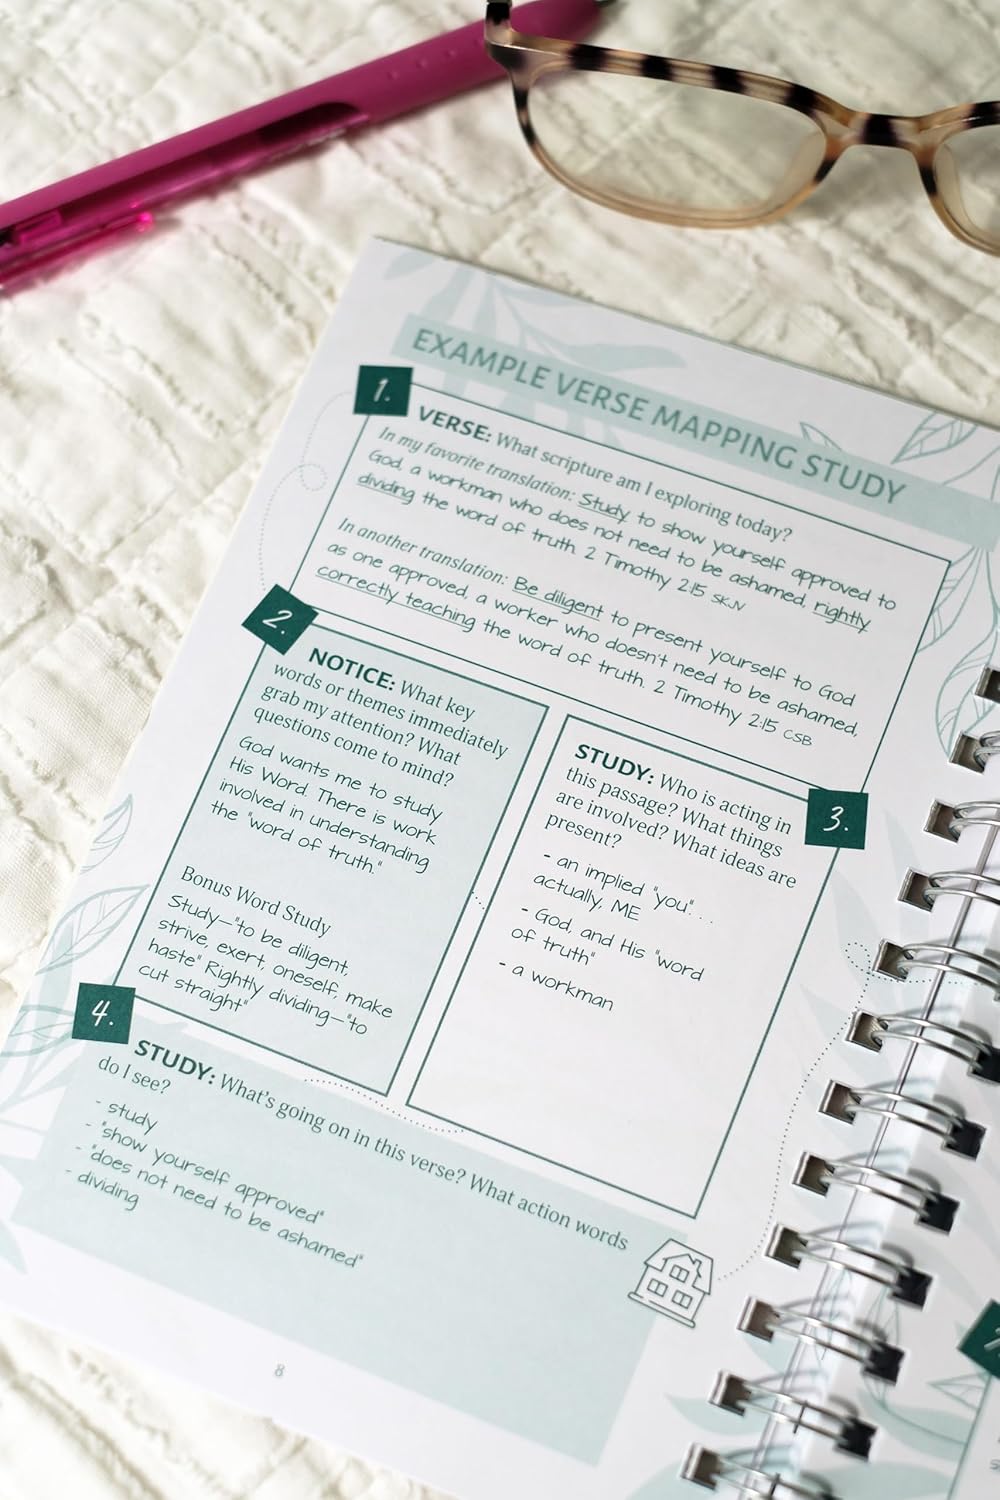 EXAMPLE VERSE MAPPING STUDY
1.
VERSE: What scripture am I exploring today?
In my favorite translation: Study to show yourself approved to
God, a workman who does not need to be ashamed, rightly
dividing the word of truth. 2 Timothy 2:15 SKJV
In another translation: Be diligent to present yourself to God
as one approved, a worker who doesn't need to be ashamed,
correctly teaching the word of truth. 2 Timothy 2:15 CSB
2.
NOTICE: What key
words or themes immediately
grab my attention? What
questions come to mind?
God wants me to study
His Word. There is work
involved in understanding
the "word of truth."
Bonus Word Study
Study—"to be diligent,
strive, exert, oneself, make
haste" Rightly dividing—"to
cut straight"
3.
STUDY: Who is acting in
this passage? What things
are involved? What ideas are
present?
- an implied "you"...
actually, ME
- God, and His "word
of truth"
- a workman
4.
STUDY: What's going on in this verse? What action words
do I see?
- study
- "show yourself approved"
- "does not need to be ashamed"
- dividing
8